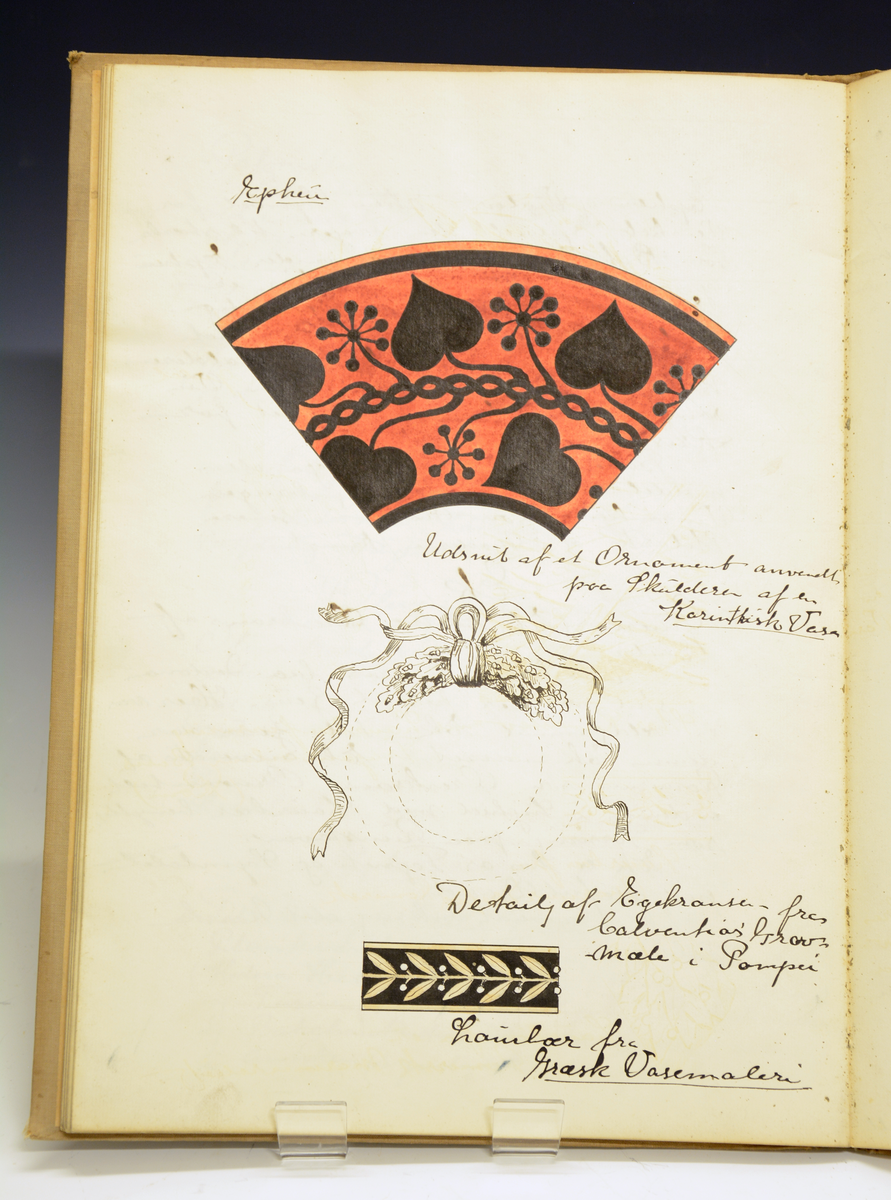 Epheu
Udsnit af et Ornament anvendt
paa Skulderen af en
Korinthisk Vase
Detail af Egekransen fra
Calventias Grav-
mæle i Pompei
Laurbær fra
Græsk Vasemaleri